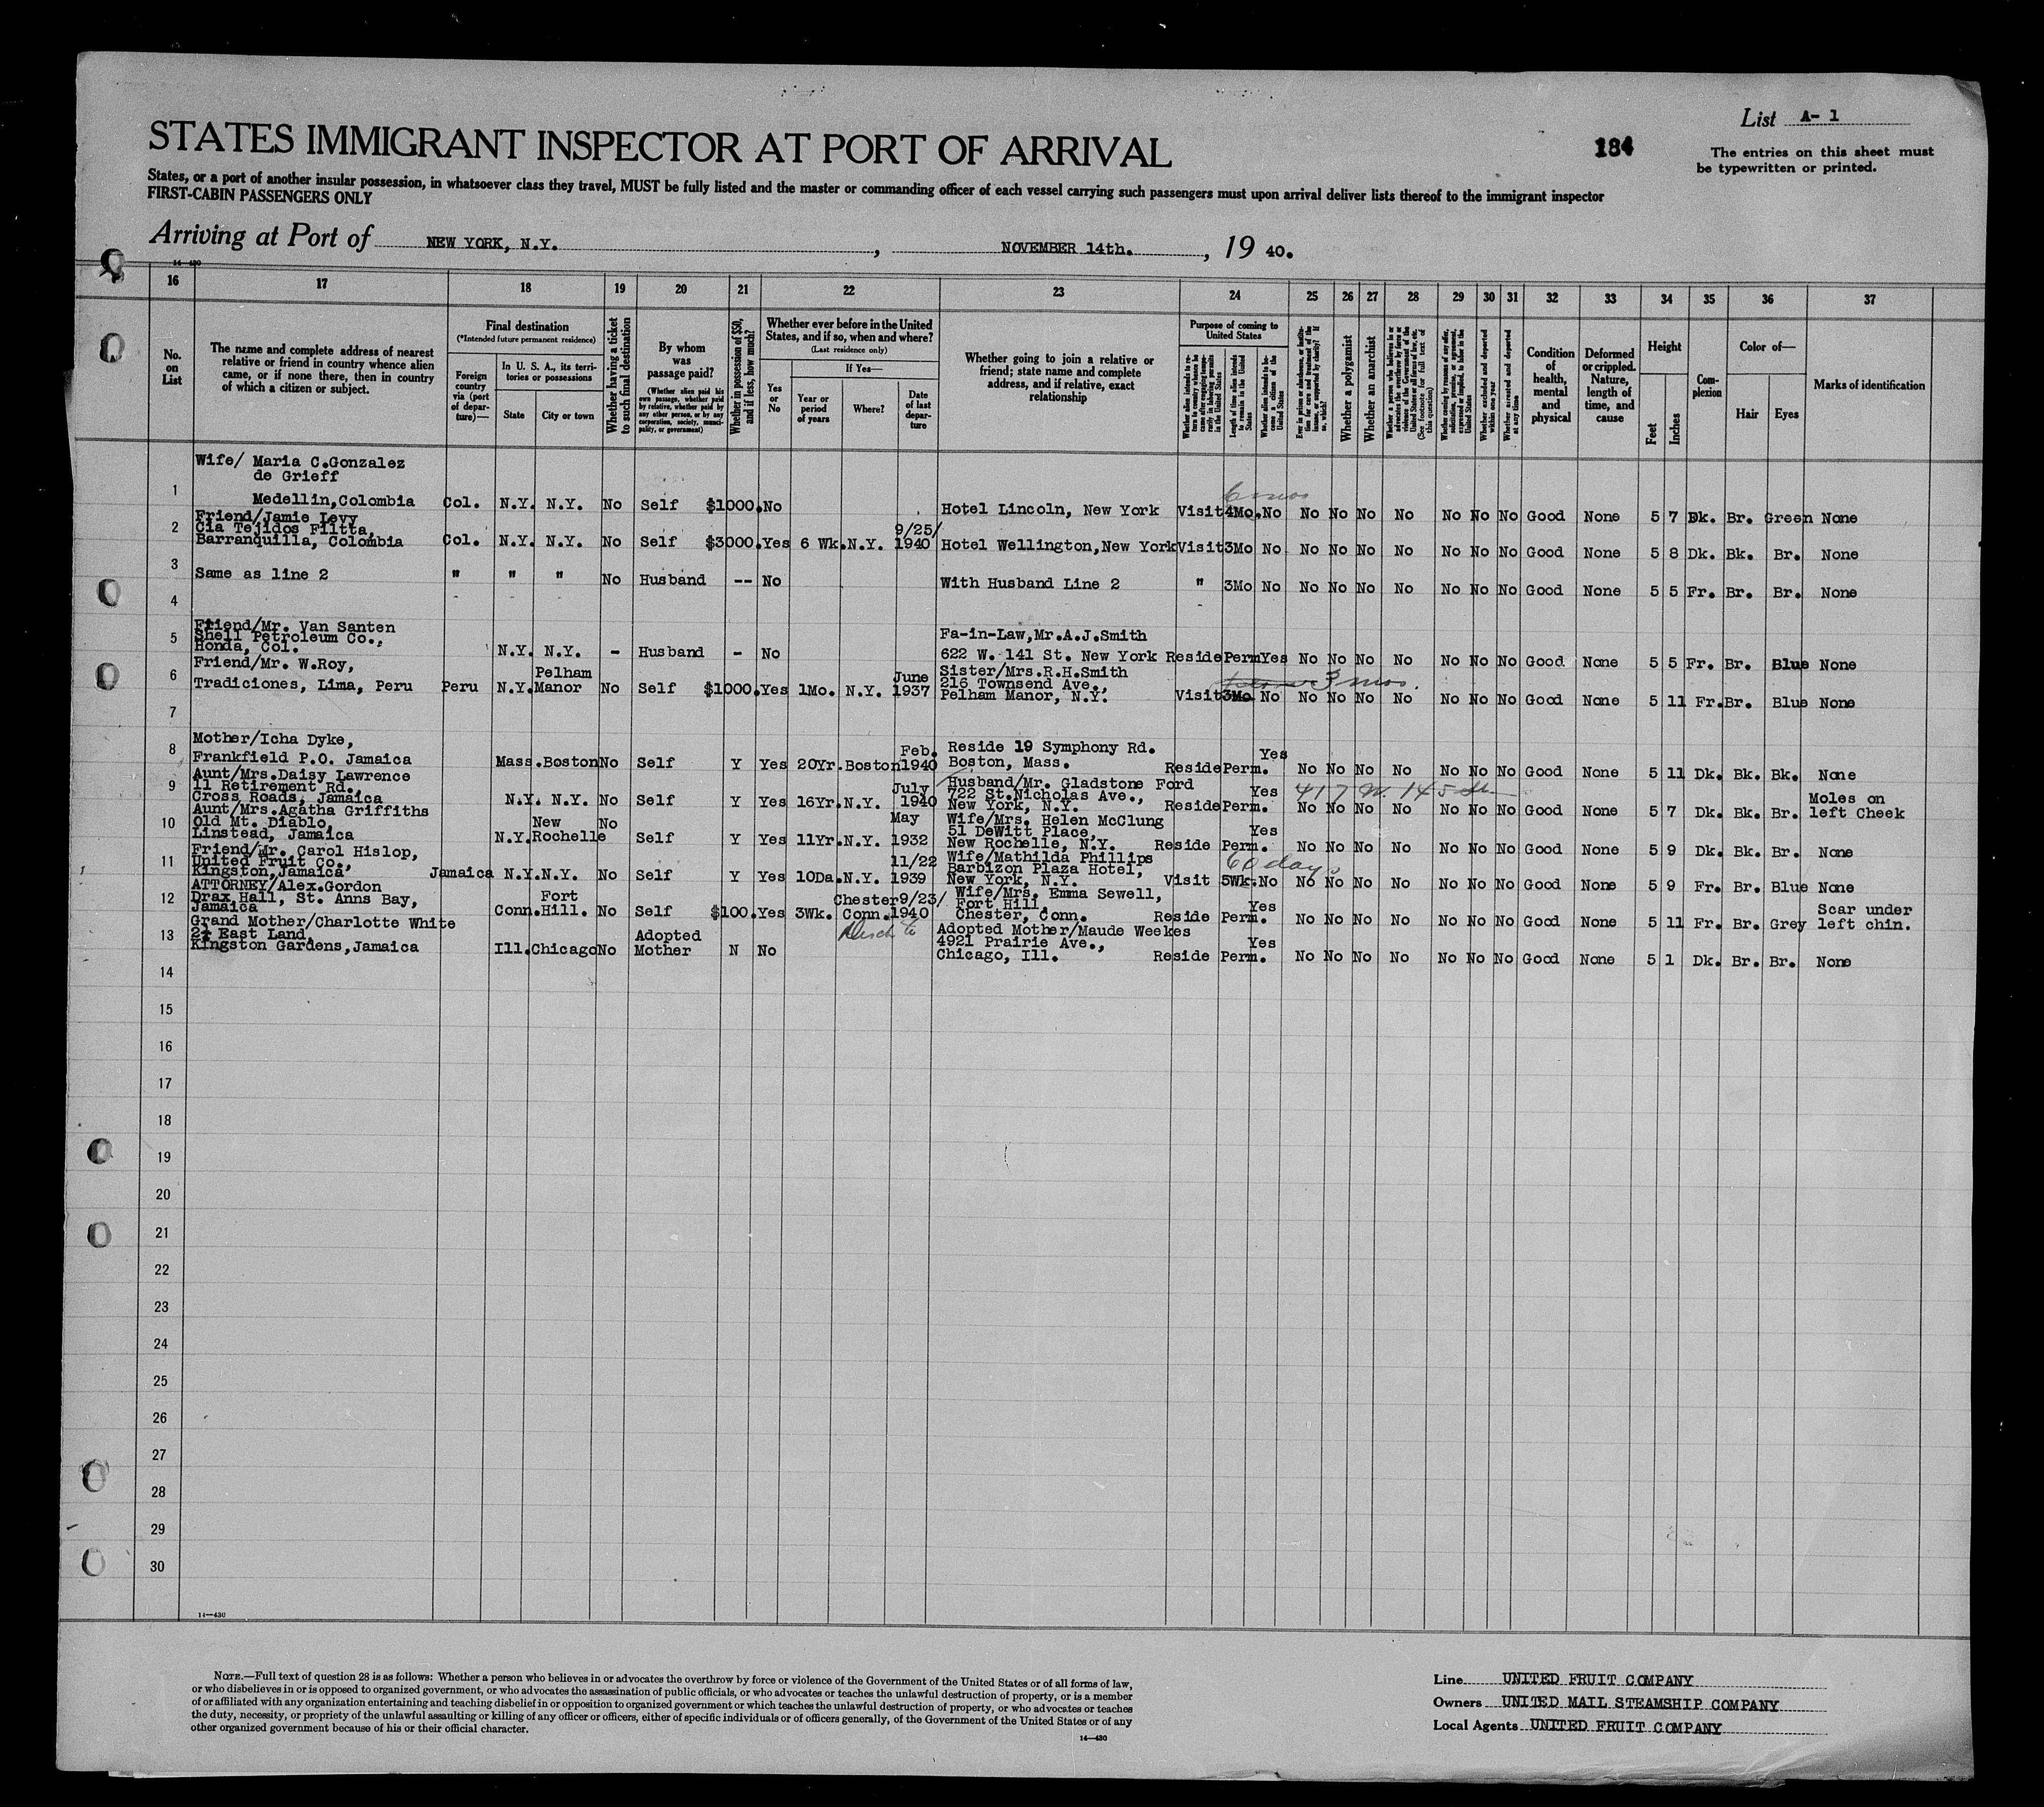 List A- 1
184
STATES IMMIGRANT INSPECTOR AT PORT OF ARRIVAL
The entries on this sheet must
be typewritten or printed.
States, or a port of another insular possession, in whatsoever class they travel, MUST be fully listed and the master or commanding officer of each vessel carrying such passengers must upon arrival deliver lists thereof to the immigrant inspector
FIRST-CABIN PASSENGERS ONLY
Arriving at Port of NEW YORK, N.Y. , NOVEMBER 14th. , 19 40.
14—430
16 17 18 19 20 21 22 23 24 25 26 27 28 29 30 31 32 33 34 35 36 37
No. on List
The name and complete address of nearest relative or friend in country whence alien came, or if none there, then in country of which a citizen or subject.
Final destination
(*Intended future permanent residence)
Foreign country via (port of departure)—
In U. S. A., its territories or possessions
State
City or town
Whether having a ticket to such final destination
By whom was passage paid?
(Whether alien paid his own passage, whether paid by relative, whether paid by any other person, or by any corporation, society, municipality, or government)
Whether in possession of $50, and if less, how much?
Whether ever before in the United States, and if so, when and where?
(Last residence only)
Yes or No
If Yes—
Year or period of years
Where?
Date of last departure
Whether going to join a relative or friend; state name and complete address, and if relative, exact relationship
Purpose of coming to United States
Whether alien intends to return to country whence he came after engaging temporarily in laboring pursuits in the United States
Length of time alien intends to remain in the United States
Whether alien intends to become a citizen of the United States
Ever in prison or almshouse, or institution for care and treatment of the insane, or supported by charity? If so, which?
Whether a polygamist
Whether an anarchist
Whether a person who believes in or advocates the overthrow by force or violence of the Government of the United States or all forms of law, etc. (See footnote for full text of this question)
Whether coming by reason of any offer, solicitation, promise, or agreement, expressed or implied, to labor in the United States
Whether excluded and deported within one year
Whether arrested and deported at any time
Condition of health, mental and physical
Deformed or crippled. Nature, length of time, and cause
Height
Feet
Inches
Complexion
Color of—
Hair
Eyes
Marks of identification
1 Wife/ Maria C.Gonzalez
de Grieff
Medellin,Colombia Col. N.Y. N.Y. No Self $1000. No Hotel Lincoln, New York Visit 4Mo. No No No No No No No No Good None 5 7 Dk. Br. Green None
6 mos
2 Friend/Jamie Levy
Cia Tejidos Filtta,
Barranquilla, Colombia Col. N.Y. N.Y. No Self $3000. Yes 6 Wk. N.Y. 9/25/ 1940 Hotel Wellington,New York Visit 3Mo No No No No No No No No Good None 5 8 Dk. Bk. Br. None
3 Same as line 2 " " " No Husband -- No With Husband Line 2 " 3Mo No No No No No No No No Good None 5 5 Fr. Br. Br. None
4
5 Friend/Mr. Van Santen
Shell Petroleum Co.,
Honda, Col. N.Y. N.Y. - Husband - No Fa-in-Law,Mr.A.J.Smith
622 W. 141 St. New York Reside Perm Yes No No No No No No No Good None 5 5 Fr. Br. Blue None
6 Friend/Mr. W.Roy,
Tradiciones, Lima, Peru Peru N.Y. Pelham Manor No Self $1000. Yes 1Mo. N.Y. June 1937 Sister/Mrs.R.H.Smith
216 Townsend Ave.,
Pelham Manor, N.Y. Visit 3Mo No No No No No No No No Good None 5 11 Fr. Br. Blue None
3 mos.
7
8 Mother/Icha Dyke,
Frankfield P.O. Jamaica Mass. Boston No Self Y Yes 20Yr. Boston Feb. 1940 Reside 19 Symphony Rd.
Boston, Mass. Reside Perm. Yes No No No No No No No Good None 5 11 Dk. Bk. Bk. None
9 Aunt/Mrs.Daisy Lawrence
11 Retirement Rd.,
Cross Roads, Jamaica N.Y. N.Y. No Self Y Yes 16Yr. N.Y. July 1940 Husband/Mr. Gladstone Ford
722 St.Nicholas Ave.,
New York, N.Y. Reside Perm. Yes No No No No No No No Good None 5 7 Dk. Bk. Br. Moles on left Cheek
417 W. 145 St
10 Aunt/Mrs.Agatha Griffiths
Old Mt. Diablo,
Linstead, Jamaica N.Y. New Rochelle No Self Y Yes 11Yr. N.Y. May 1932 Wife/Mrs. Helen McClung
51 DeWitt Place,
New Rochelle, N.Y. Reside Perm. Yes No No No No No No No Good None 5 9 Dk. Bk. Br. None
11 Friend/Mr. Carol Hislop,
United Fruit Co.,
Kingston,Jamaica Jamaica N.Y. N.Y. No Self Y Yes 10Da. N.Y. 11/22 1939 Wife/Mathilda Phillips
Barbizon Plaza Hotel,
New York, N.Y. Visit 5Wk. No No No No No No No No Good None 5 9 Fr. Br. Blue None
60 days
12 ATTORNEY/Alex.Gordon
Drax Hall, St. Anns Bay,
Jamaica Conn. Fort Hill. No Self $100. Yes 3Wk. Chester Conn. 9/23/ 1940 Wife/Mrs. Emma Sewell,
Fort Hill,
Chester, Conn. Reside Perm. Yes No No No No No No No Good None 5 11 Fr. Br. Grey Scar under left chin.
13 Grand Mother/Charlotte White
2½ East Land,
Kingston Gardens,Jamaica Ill. Chicago No Adopted Mother N No Adopted Mother/Maude Weekes
4921 Prairie Ave.,
Chicago, Ill. Reside Perm. Yes No No No No No No No Good None 5 1 Dk. Br. Br. None
14
15
16
17
18
19
20
21
22
23
24
25
26
27
28
29
30
14—430
NOTE.—Full text of question 28 is as follows: Whether a person who believes in or advocates the overthrow by force or violence of the Government of the United States or of all forms of law,
or who disbelieves in or is opposed to organized government, or who advocates the assassination of public officials, or who advocates or teaches the unlawful destruction of property, or is a member
of or affiliated with any organization entertaining and teaching disbelief in or opposition to organized government or which teaches the unlawful destruction of property, or who advocates or teaches
the duty, necessity, or propriety of the unlawful assaulting or killing of any officer or officers, either of specific individuals or of officers generally, of the Government of the United States or of any
other organized government because of his or their official character.
14—430
Line UNITED FRUIT COMPANY
Owners UNITED MAIL STEAMSHIP COMPANY
Local Agents UNITED FRUIT COMPANY